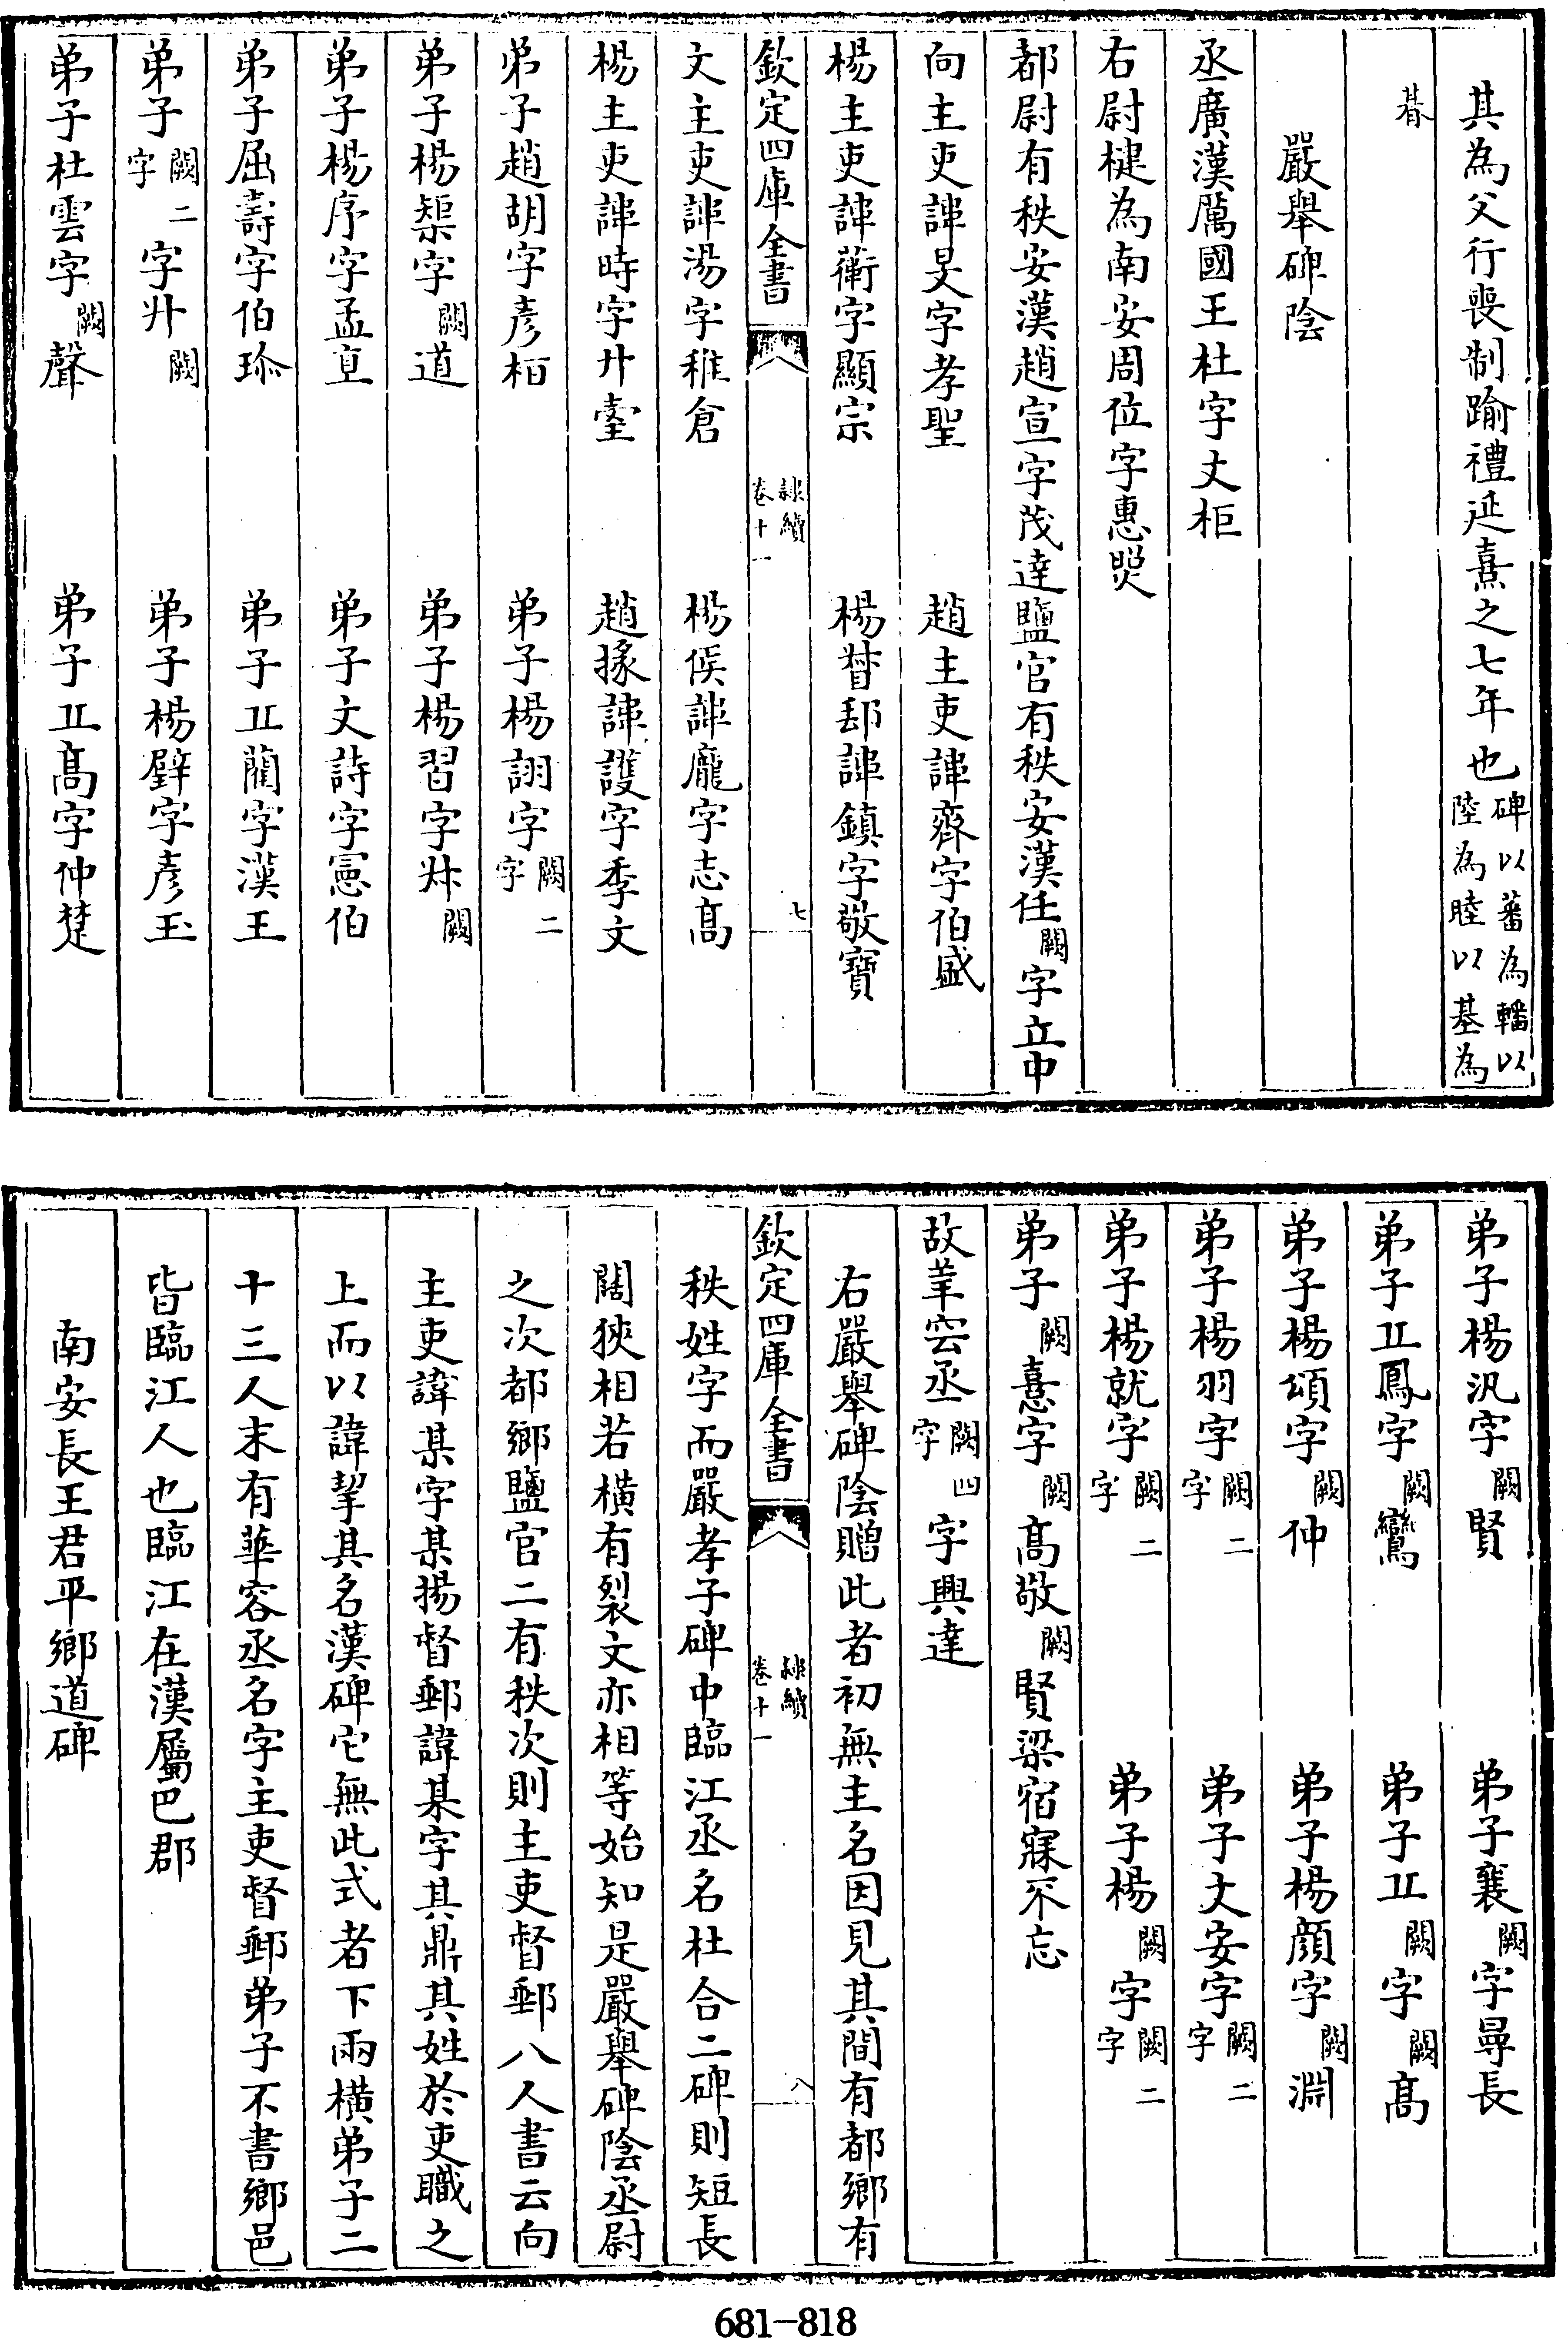 其為父行喪制踰禮延熹之七年也碑以蕃為轓以陸為睦以基為
朞
嚴舉碑陰
丞廣漢厲國王杜字文柜
右尉楗為南安周位字惠煚
都尉有秩安漢趙宣字茂達鹽官有秩安漢任闕字立中
向主吏諱旻字孝聖 趙主吏諱齊字伯盛
楊主吏諱衛字顯宗 楊督郵諱鎮字敬寶
欽定四庫全書 隸續卷十一 七
文主吏諱湯字稚倉 楊侯諱龐字志高
楊主吏諱時字升臺 趙掾諱護字季文
弟子趙胡字彥栢 弟子楊詡字闕二字
弟子楊榘字闕道 弟子楊習字升闕
弟子楊序字孟直 弟子文詩字憲伯
弟子屈壽字伯珎 弟子丠藺字漢王
弟子闕二字字升闕 弟子楊辟字彥玉
弟子杜雲字闕聲 弟子丠高字仲楚
弟子楊汎字闕賢 弟子襄闕字㝷長
弟子丠鳳字闕鸞 弟子丠闕字闕高
弟子楊頌字闕仲 弟子楊顏字闕淵
弟子楊羽字闕二字 弟子文安字闕二字
弟子楊就字闕二字 弟子楊闕字闕二字
弟子闕憙字闕高敬闕賢梁宿寐不忘
故羊雲丞闕四字字興達
右嚴舉碑陰贈此者初無主名因見其間有都鄉有
欽定四庫全書 隸續卷十一 八
秩姓字而嚴孝子碑中臨江丞名杜合二碑則短長
闊狹相若橫有裂文亦相等始知是嚴舉碑陰丞尉
之次都鄉鹽官二有秩次則主吏督郵八人書云向
主吏諱某字某揚督郵諱某字某鼎其姓於吏職之
上而以諱挈其名漢碑它無此式者下兩橫弟子二
十三人末有華容丞名字主吏督郵弟子不書鄉邑
皆臨江人也臨江在漢屬巴郡
南安長王君平鄉道碑
681-818